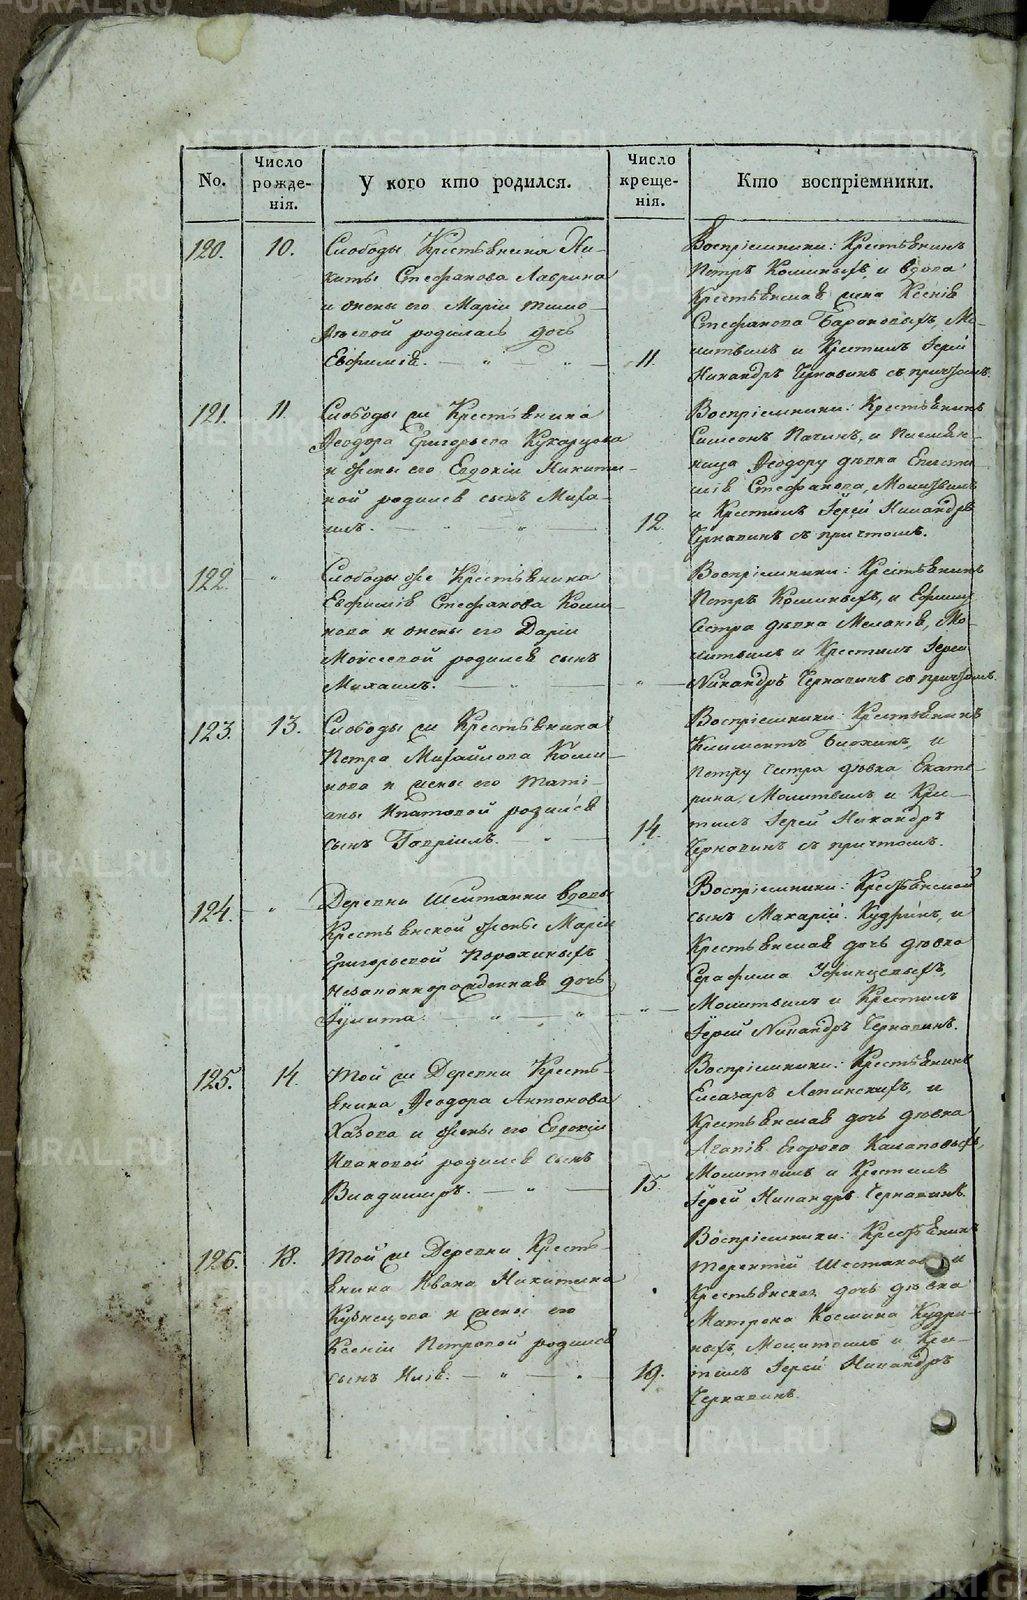 No.
Число рожде-нія.
У кого кто родился.
Число креще-нія.
Кто воспріемники.
120.
10.
Слободы Крестьянина Ни-
киты Стефанова Лаврина
и жены его Маріи Тимо-
ѳѣевой родилась дочь
Евфимія.
11.
Воспріемники: Крестьянинъ
Петръ Коминыхъ, и вдова
Крестьянская жена Ксенія
Стефанова, Мо-
литвилъ и Крестилъ Іерей
Никандръ Чернавинъ съ причтомъ.
121.
11.
Слободы ж Крестьянина
Ѳеодора Григорьева
и жены его Евдокіи Никити-
ной родился сынъ Миха-
илъ.
12.
Воспріемники: Крестьянинъ
Симеонъ и Племян-
ница Ѳеодору дѣвка Еписти-
мія Стефанова, Молитвилъ
и Крестилъ Іерей Никандръ
Чернавинъ съ причтомъ.
122.
"
Слободы же Крестьянина
Евфимія Стефанова Коми-
нова и жены его Даріи
Моѵсеевой родился сынъ
Михаилъ.
"
Воспріемники: Крестьянинъ
Петръ Коминыхъ, и Ефиму
Сестра дѣвка Меланія, Мо-
литвилъ и Крестилъ Іерей
Никандръ Чернавинъ съ причтомъ.
123.
13.
Слободы ж Крестьянина
Петра Михайлова Коми-
нова и жены его Тати-
аны Ипатовой родился
сынъ Гавріилъ.
14.
Воспріемники: Крестьянинъ
Климентъ и
Петру Сестра дѣвка Екате-
рина, Молитвилъ и Кре-
тилъ Іерей Никандръ
Чернавинъ съ причтомъ.
124.
"
Деревни Шайтанки вдовы
Крестьянской жены Маріи
Григорьевой
незаконнорожденная дочь
Іулита.
"
Воспріемники: Крестьянской
сынъ Макарій Кудринъ, и
Крестьянская дочь дѣвка
Серафима Уфинцевыхъ,
Молитвилъ и Крестилъ
Іерей Никандръ Чернавинъ.
125.
14.
Той ж Деревни Кресть-
янина Ѳеодора Антонова
и жены его Евдокіи
Ивановой родился сынъ
Владимиръ.
15.
Воспріемники: Крестьянинъ
Елеазаръ и
Крестьянская дочь дѣвка
Агапія Егорова
Молитвилъ и Крестилъ
Іерей Никандръ Чернавинъ.
126.
18.
Той ж Деревни Кресть-
янина Ивана Никитина
Кузнецова и жены его
Ксеніи Петровой родился
сынъ Илія.
19.
Воспріемники: Крестьянинъ
Терентій и
Крестьянская дочь дѣвка
Матрона Космина Кудри-
ныхъ, Молитвилъ и Кре-
тилъ Іерей Никандръ
Чернавинъ.
METRIKI.GASO-URAL.RU